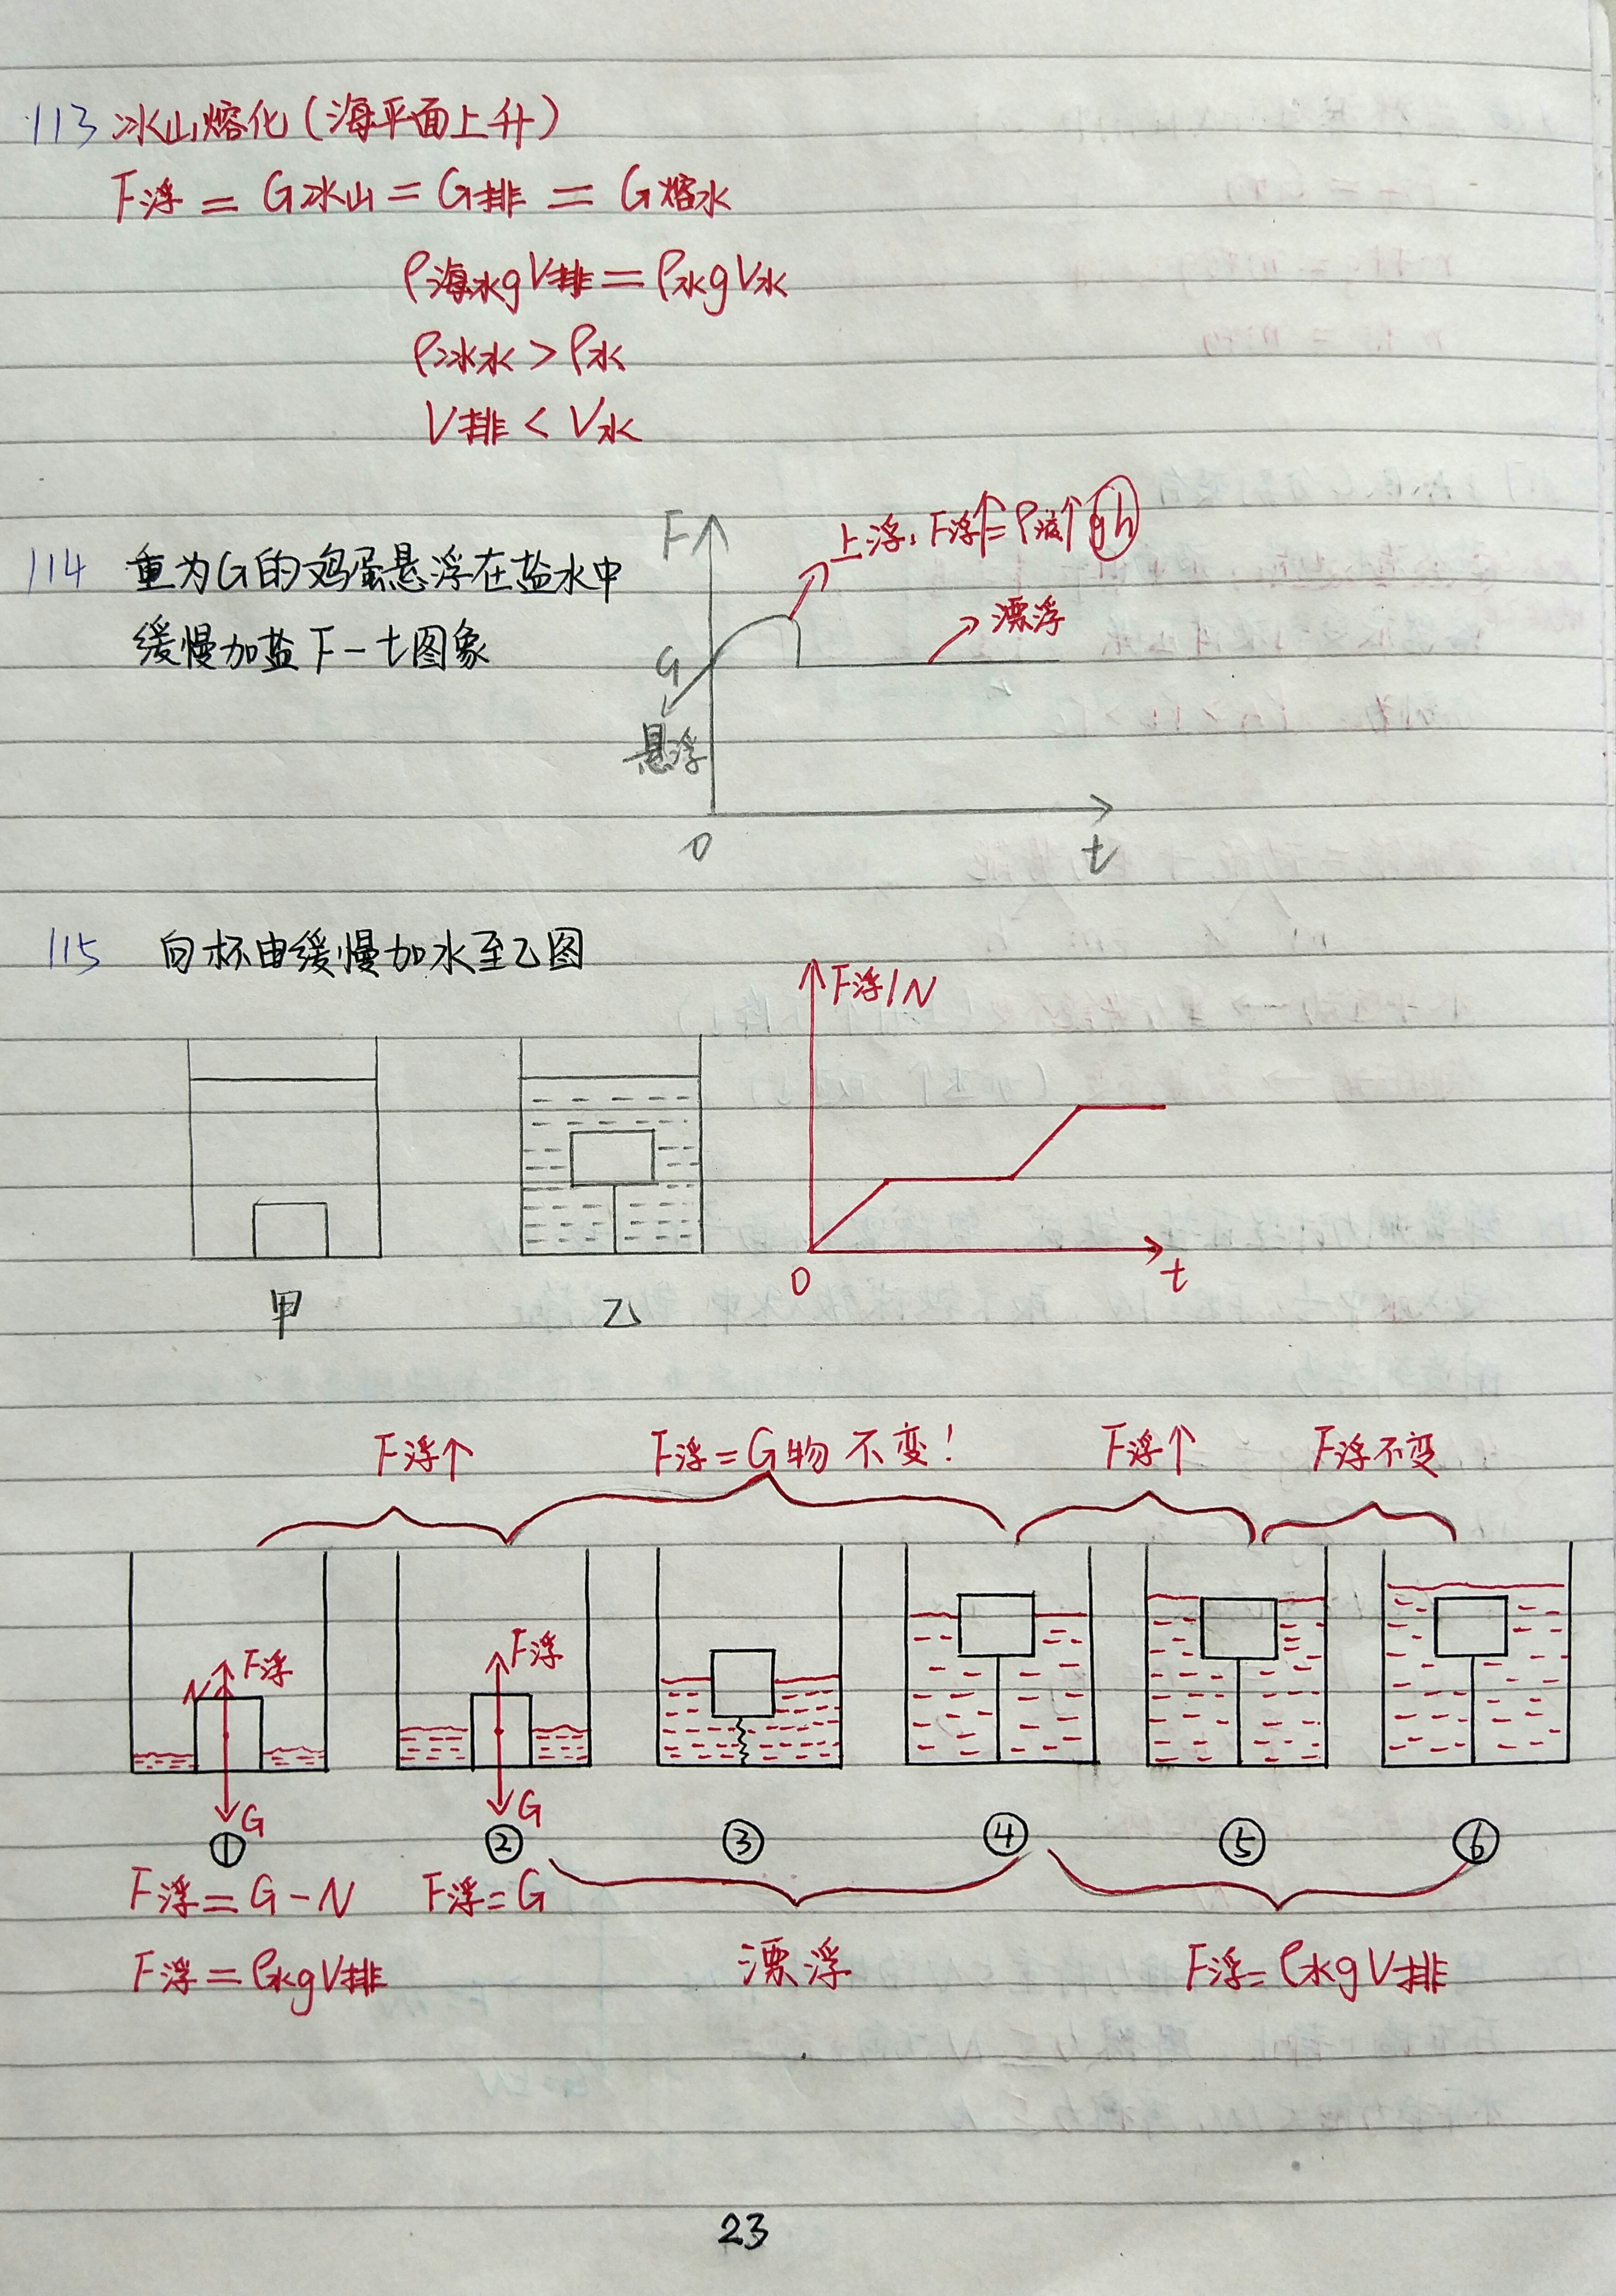 113 冰山熔化(海平面上升)
F浮 = G冰山 = G排 = G熔水
ρ海水gV排 = ρ水gV水
ρ冰水 > ρ水
V排 < V水
114 重为G的鸡蛋悬浮在盐水中
缓慢加盐 F-t图象
F
上浮: F浮↑=ρ液↑gh
漂浮
G
悬浮
0
t
115 向杯由缓慢加水至乙图
F浮/N
0
t
甲
乙
F浮↑
F浮=G物 不变!
F浮↑
F浮不变
N
F浮
F浮
G
G
① ② ③ ④ ⑤ ⑥
F浮=G-N
F浮=G
F浮=ρ水gV排
漂浮
F浮=ρ水gV排
23